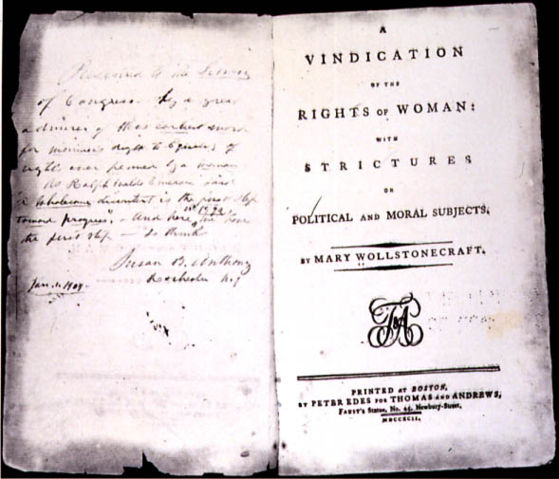 Presented to the Library
of Congress by a great
admirer of this earliest work
for woman's right to Equality of
rights ever penned by a woman
As Ralph Waldo Emerson said
"A wholesome discontent is the first step
toward progress." - And here in 1792 we have
the first step - so thinks
Susan B. Anthony
Rochester N.Y.
Jan. 1. 1904.
A
VINDICATION
OF THE
RIGHTS OF WOMAN:
WITH
STRICTURES
ON
POLITICAL AND MORAL SUBJECTS.
BY MARY WOLLSTONECRAFT.
PRINTED AT BOSTON,
BY PETER EDES FOR THOMAS AND ANDREWS,
FAUST'S Statue, No. 45, Newbury-Street,
MDCCXCII.